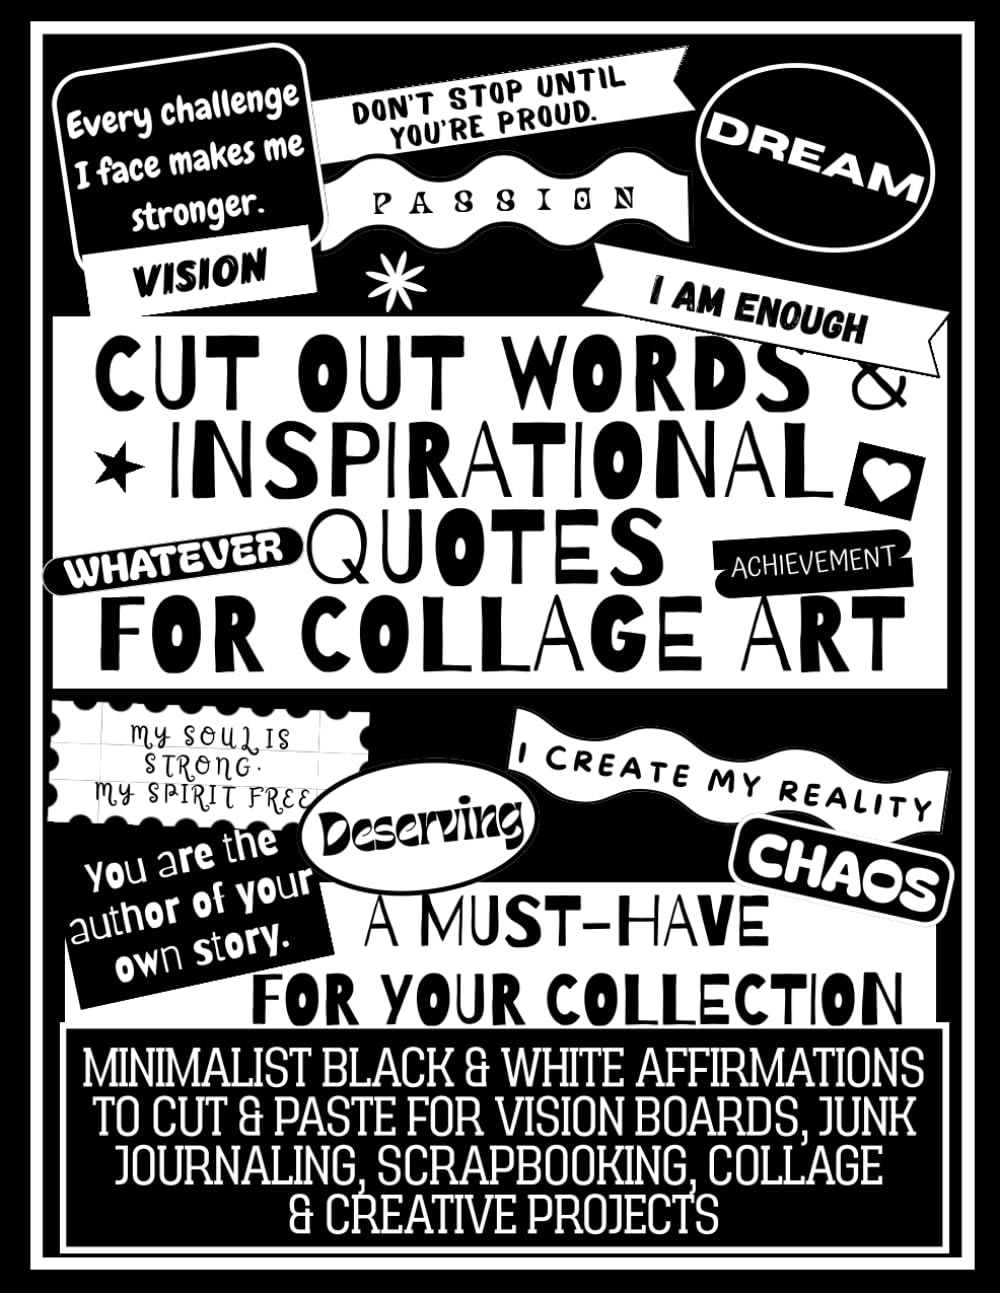 Every challenge
I face makes me
stronger.
DON'T STOP UNTIL
YOU'RE PROUD.
DREAM
PASSION
VISION
I AM ENOUGH
CUT OUT WORDS &
INSPIRATIONAL
QUOTES
WHATEVER
ACHIEVEMENT
FOR COLLAGE ART
MY SOUL IS
STRONG.
MY SPIRIT FREE
I CREATE MY REALITY
Deserving
CHAOS
You are the
author of your
own story.
A MUST-HAVE
FOR YOUR COLLECTION
MINIMALIST BLACK & WHITE AFFIRMATIONS
TO CUT & PASTE FOR VISION BOARDS, JUNK
JOURNALING, SCRAPBOOKING, COLLAGE
& CREATIVE PROJECTS